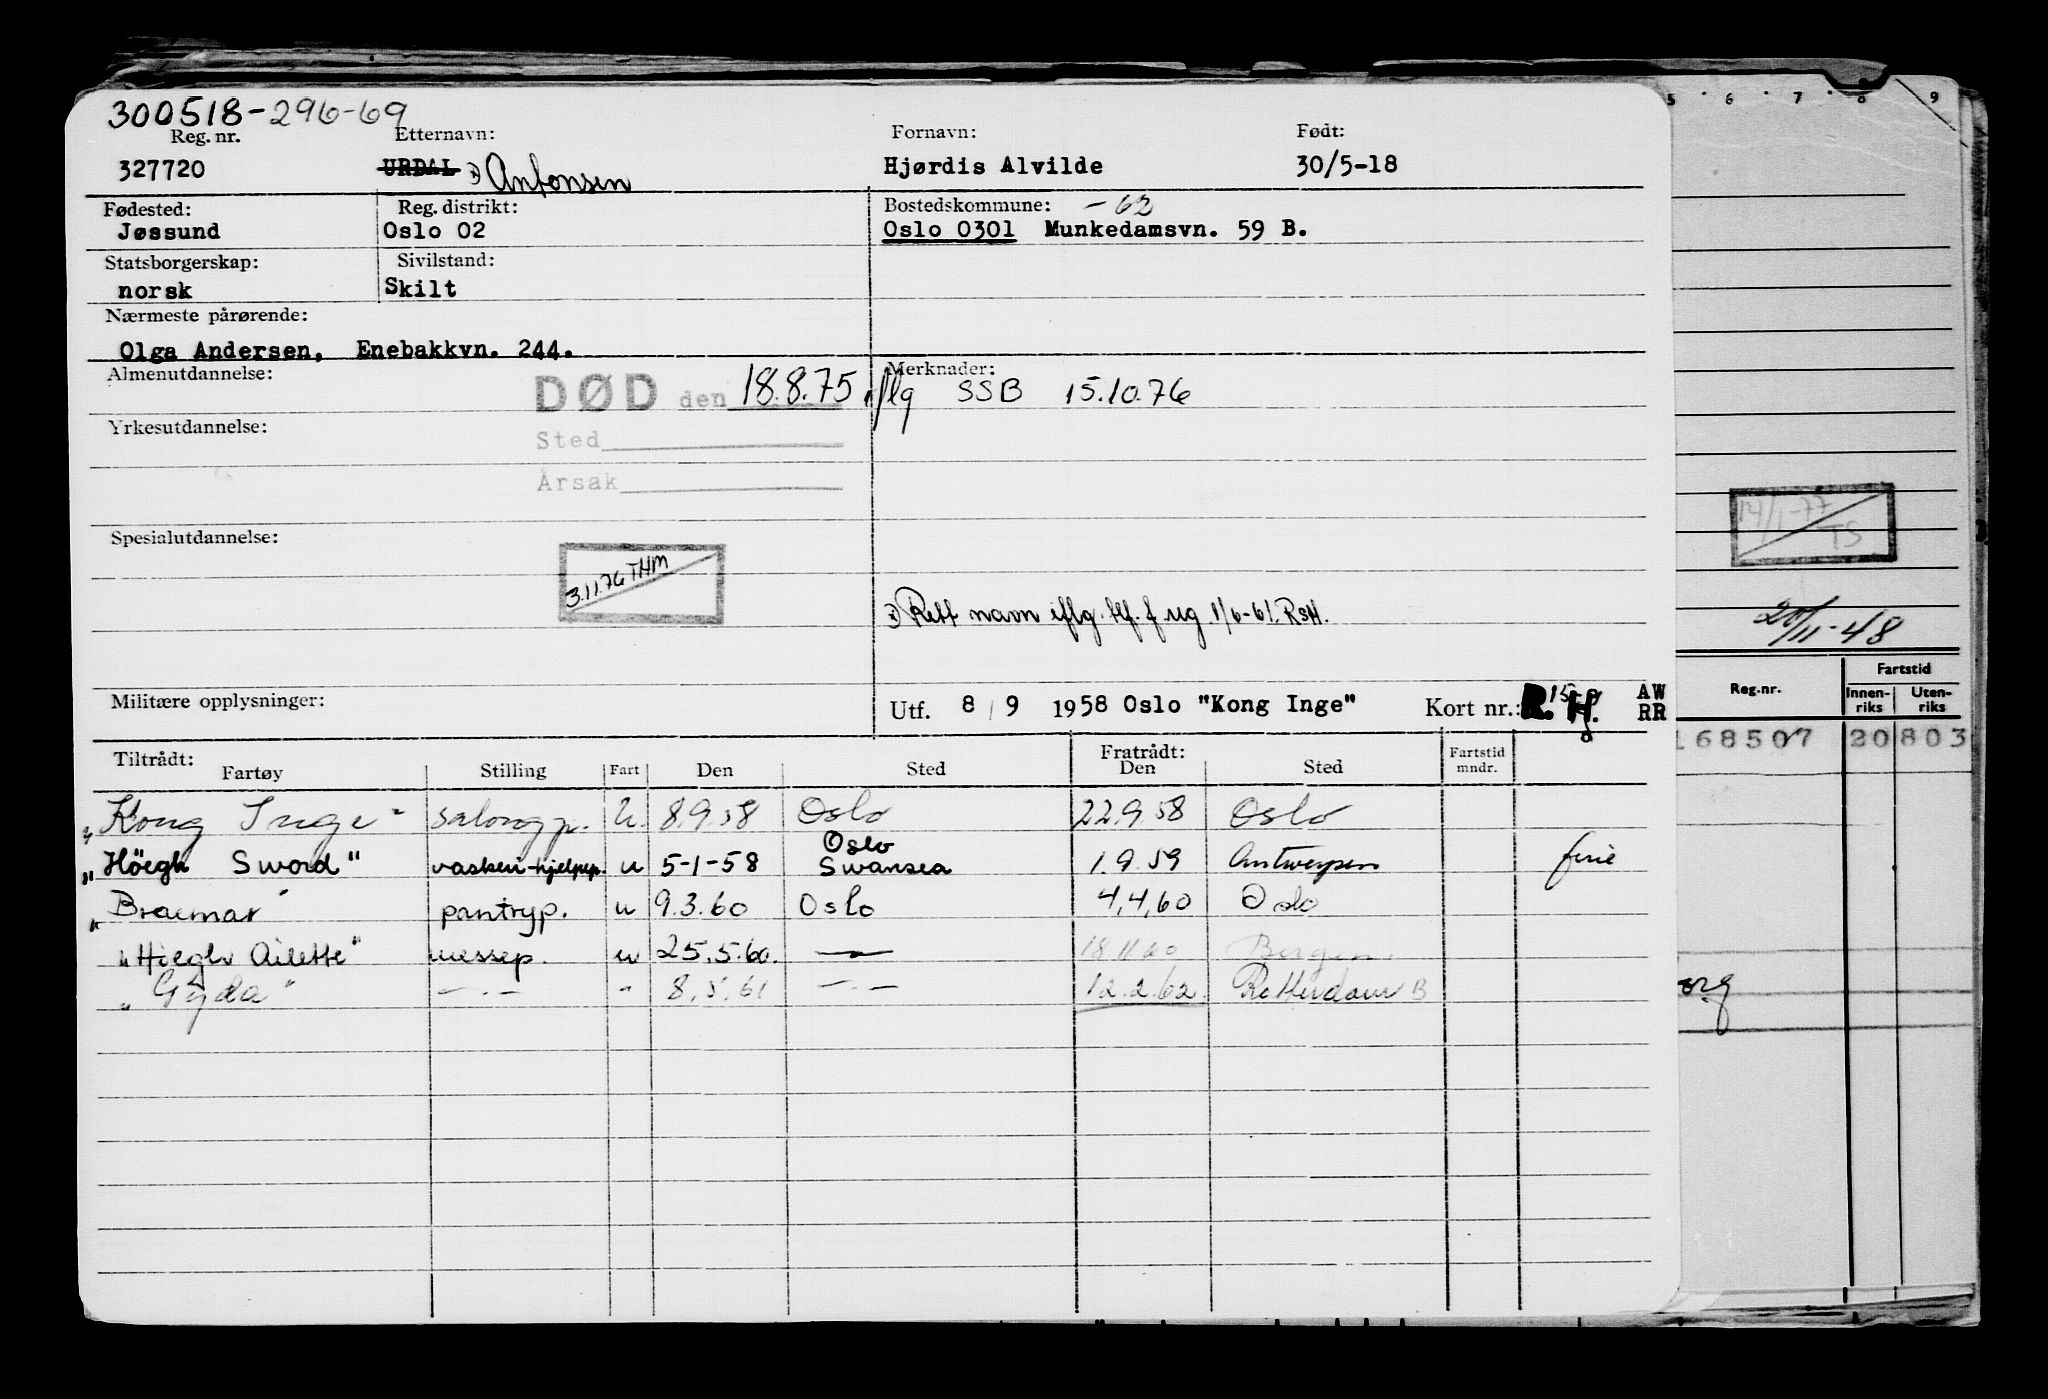 300518-296-69
Reg. nr. Etternavn: Fornavn: Født:
327720 URDAL x) Antonsen Hjørdis Alvilde 30/5-18
Fødested: Reg. distrikt: Bostedskommune: -62
Jøssund Oslo 02 Oslo 0301 Munkedamsvn. 59 B.
Statsborgerskap: Sivilstand:
norsk Skilt
Nærmeste pårørende:
Olga Andersen, Enebakkvn. 244.
Almenutdannelse: Merknader:
DØD den 18.8.75 iflg SSB 15.10.76
Yrkesutdannelse:
Sted
Årsak
Spesialutdannelse:
3.11.76 THM
x) Rett navn iflg. tlf. f. ug 1/6-61. RsH.
Militære opplysninger: Utf. 8/9 1958 Oslo "Kong Inge" Kort nr.: R. H. AW
RR
Tiltrådt: Fratrådt:
Fartøy Stilling Fart Den Sted Den Sted Fartstid mndr.
"Kong Inge" salongp. U. 8.9.58 Oslo 22.9.58 Oslo
"Höegh Sword" vaskeri-hjelpep. u 5-1-58 Oslo Swansea 1.9.59 Antwerpen ferie
"Braemar" pantryp. u 9.3.60 Oslo 4.4.60 Oslo
"Höegh Ailette" messep. u 25.5.60. — 18.11.60 Bergen.
"Gyda" —.— " 8.5.61 —.— 12.2.62. Rotterdam B
5 6 7 8 9
14/1-77
TS
20/11-48
Reg.nr. Fartstid
Innen-riks Uten-riks
168507 20 803
org